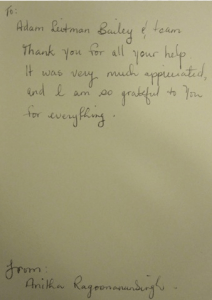 To:
Adam Leitman Bailey & team
Thank you for all your help
It was very much appreciated,
and I am so grateful to You
for everything.
From:
Anitha Ragoonanansingh.